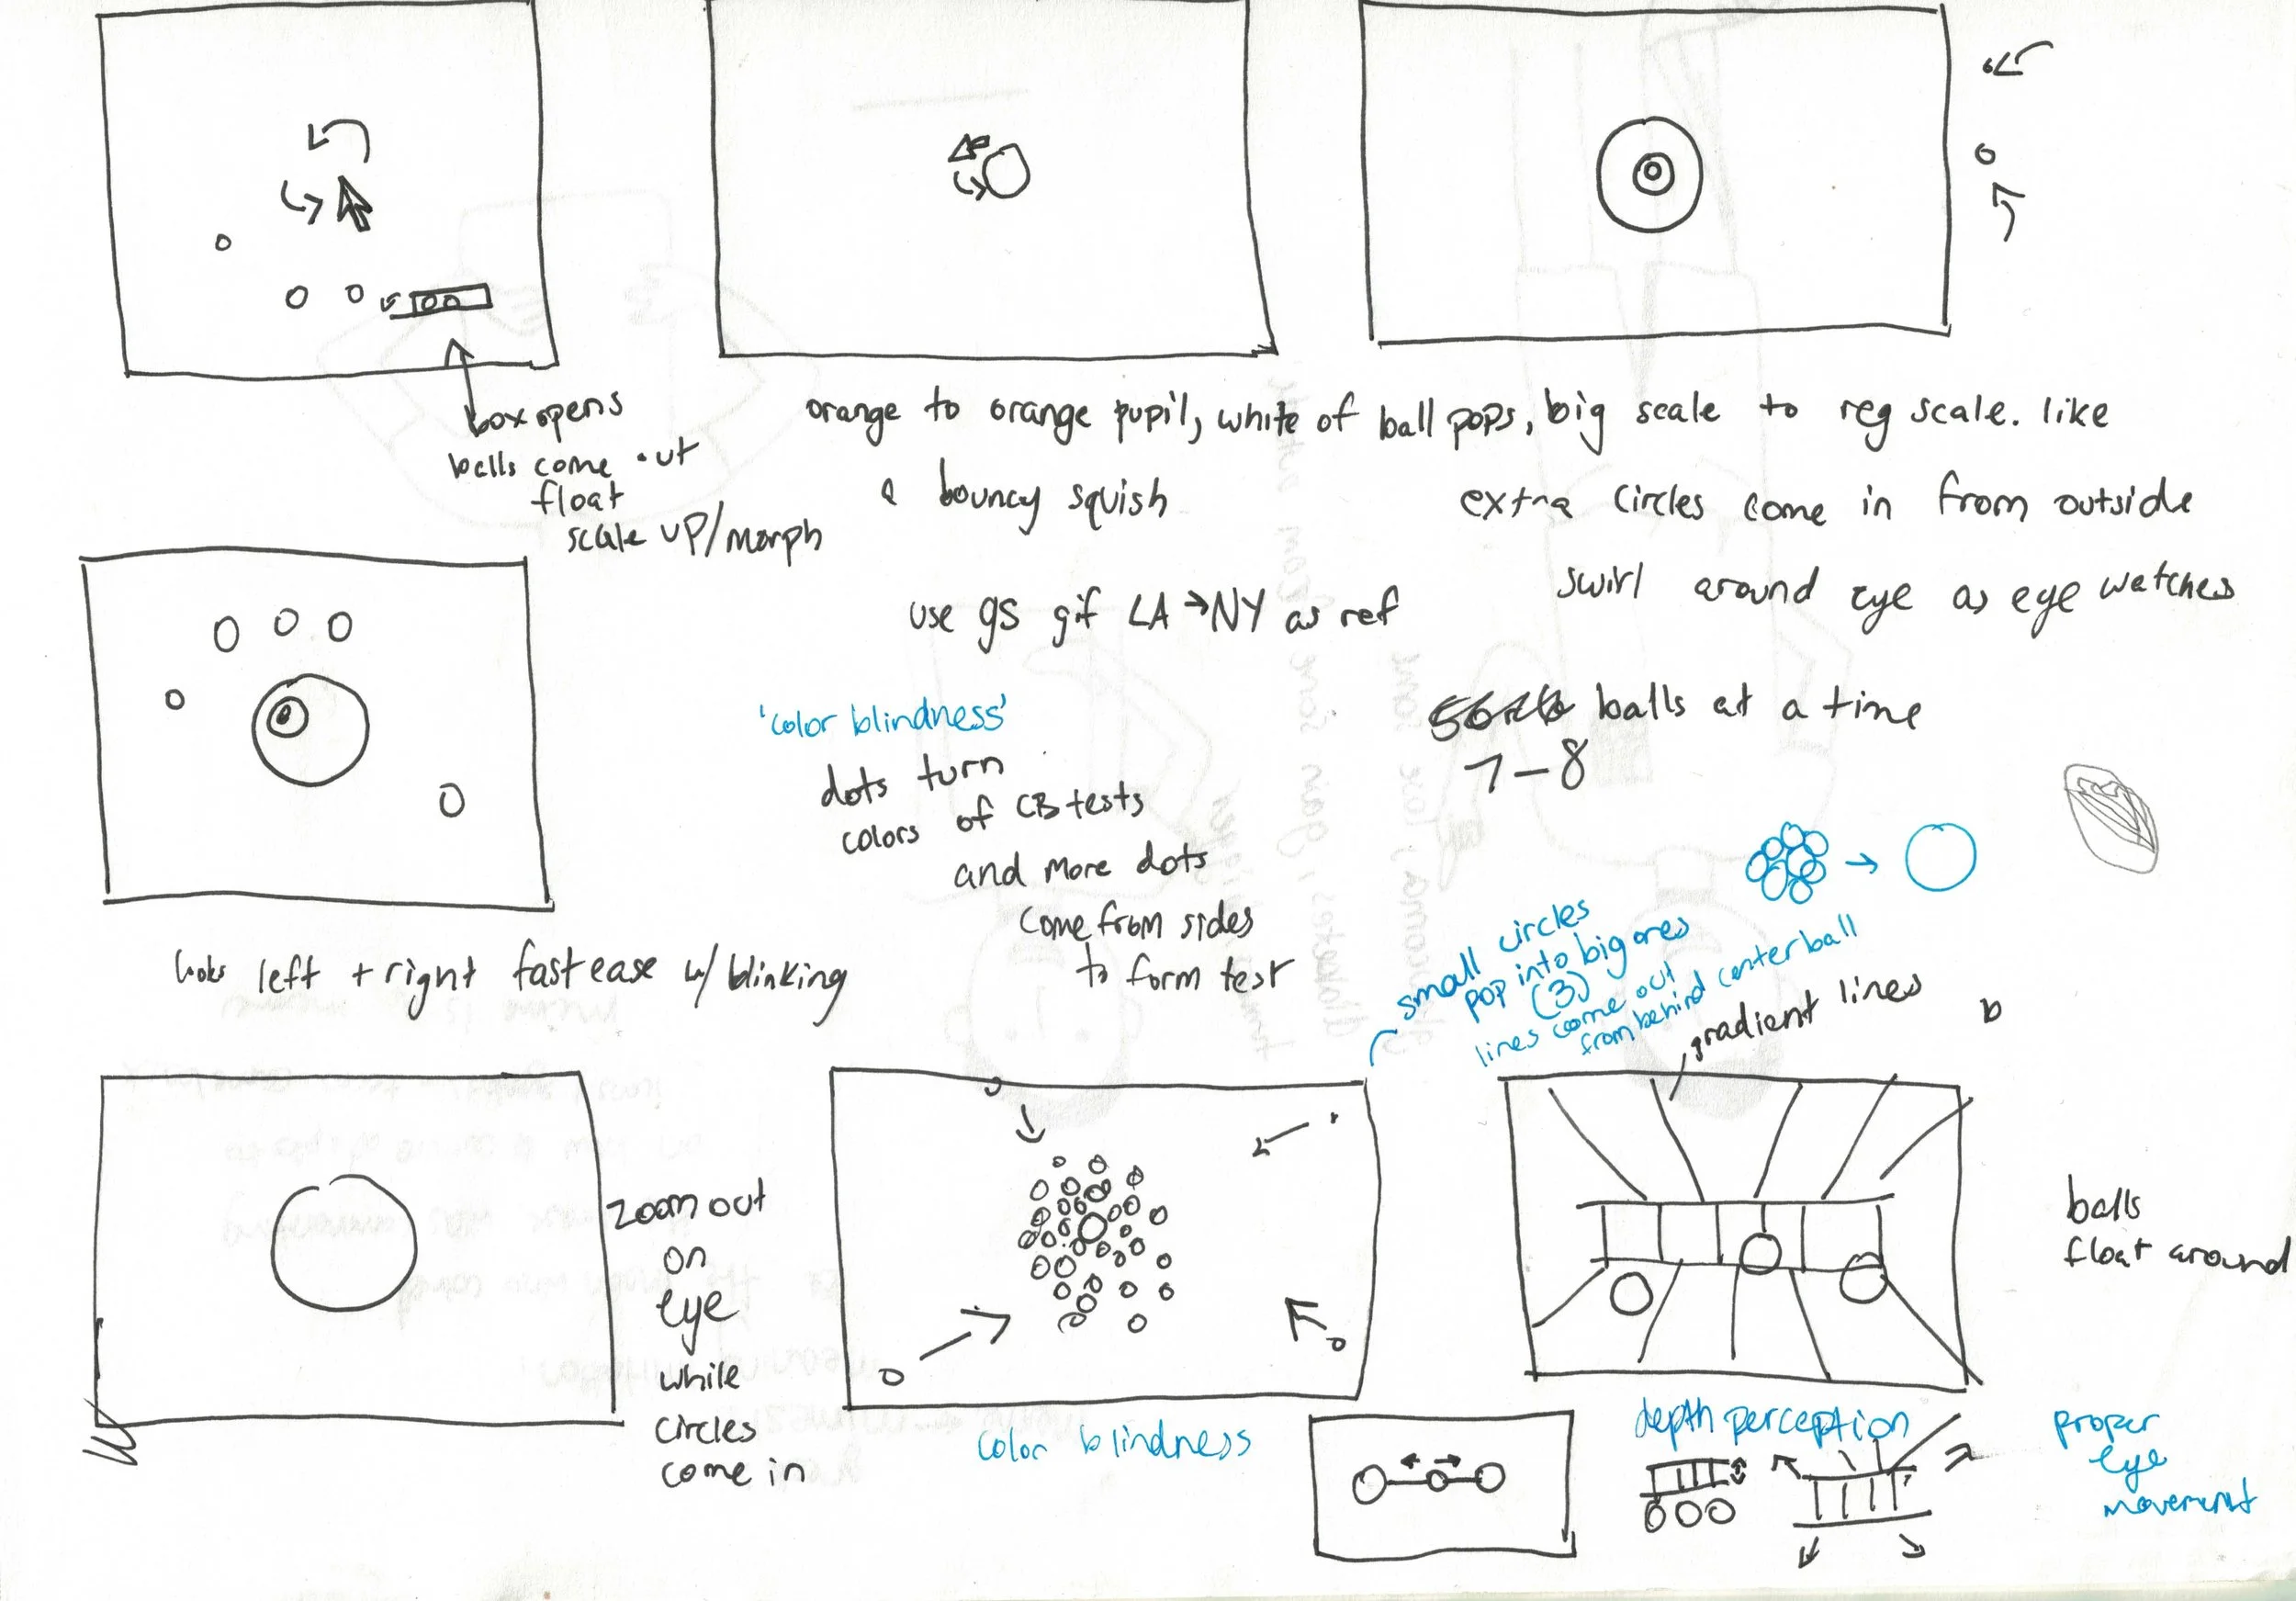 box opens
balls come out
float
scale up/morph
orange to orange pupil, white of ball pops, big scale to reg scale. like
a bouncy squish
extra circles come in from outside
swirl around eye as eye watches
use gs gif LA → NY as ref
balls at a time
7-8
'color blindness'
dots turn
colors of CB tests
and more dots
come from sides
to form test
looks left + right fast ease w/ blinking
small circles
pop into big ones
(3)
lines come out
from behind center ball
gradient lines
b
zoom out
on
eye
while
circles
come in
color blindness
balls
float around
depth perception
proper
eye
movement